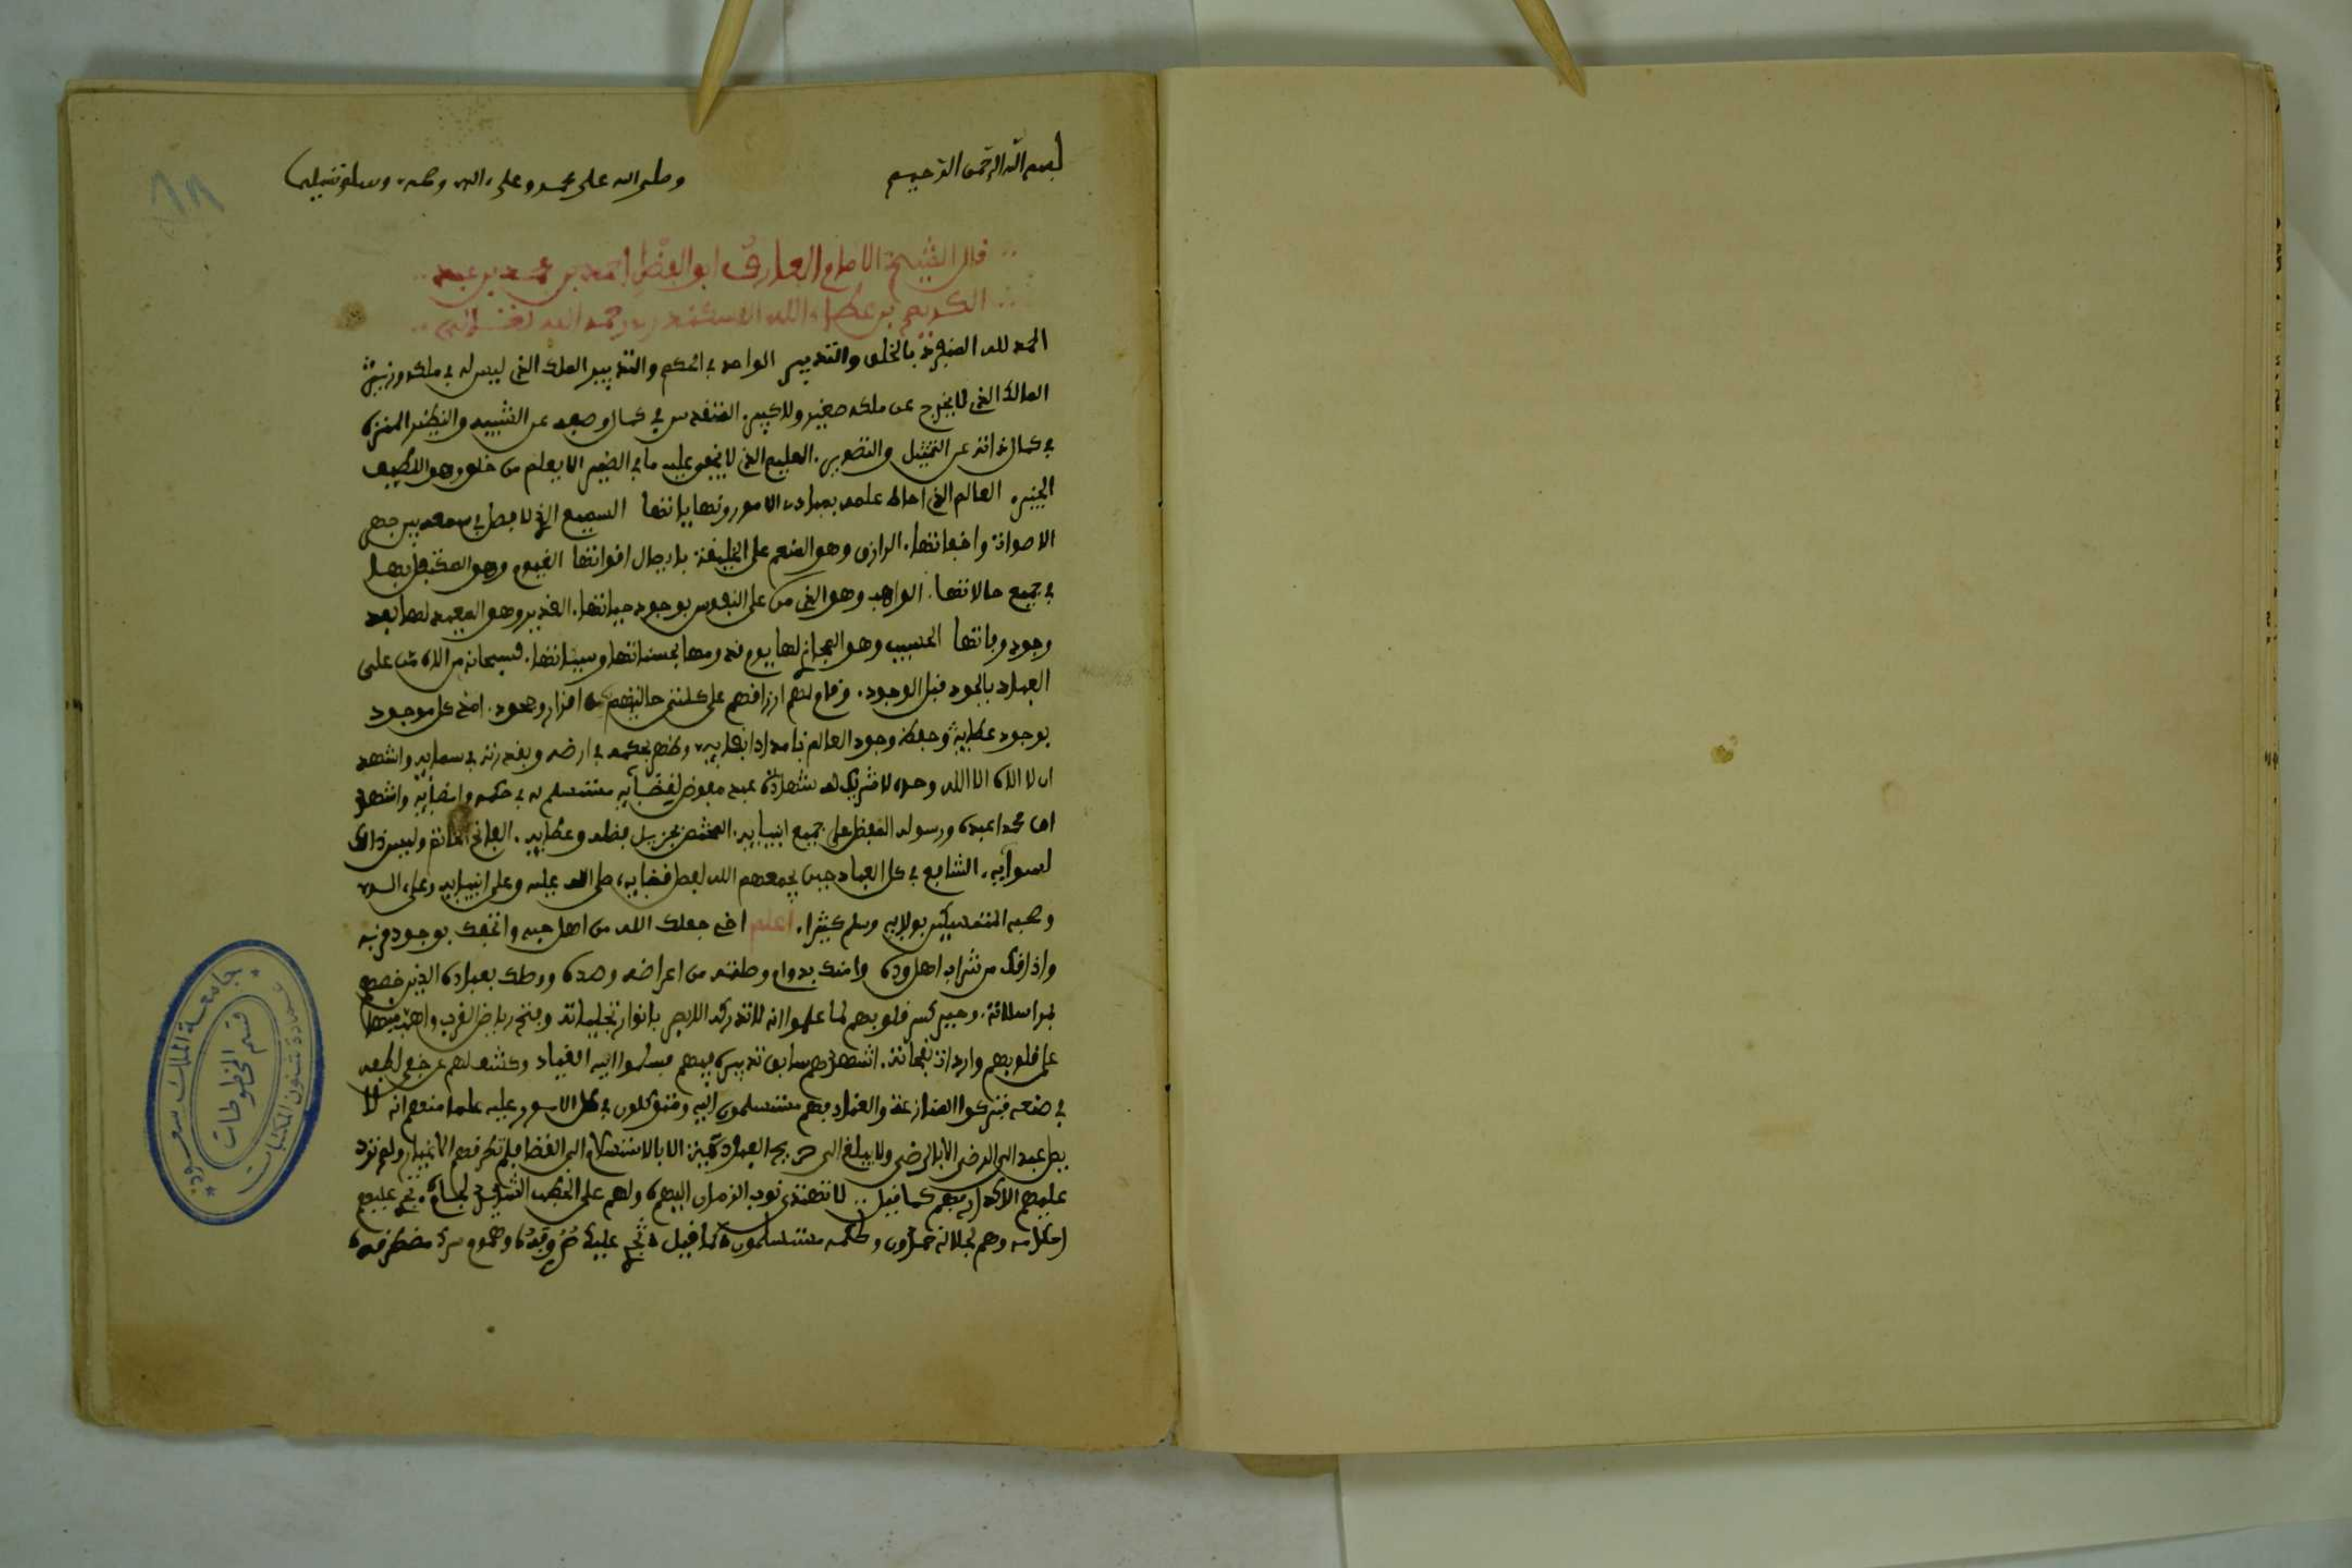 بسم الله الرحمن الرحيم وصلى الله على محمد وعلى اله وصحبه وسلم تسليما
قال الشيخ الامام العارف ابو الفضل احمد بن محمد بن عبد
الكريم بن عطاء الله السكندري رحمه الله
الحمد لله المنفرد بالخلق والتدبير الواحد في الحكم والتقدير الملك الذي ليس له في ملكه وزير
المالك الذي لا يخرج عن ملكه صغير ولا كبير. المتقدس في كمال وصفه عن الشبيه والنظير المنزه
في كمال ذاته عن التمثيل والتصوير. العليم الذي لا يخفى عليه ما في الضمير الا يعلم من خلق وهو اللطيف
الخبير. العالم الذي احاط علمه بمبادئ الامور ونهاياتها السميع الذي لا فضل في سمعه بين جهر
الاصوات واخفاتها. الرازق وهو المنعم على الخليقة بايصال اقواتها القيوم وهو المتكفل بها
في جميع حالاتها. الواهب وهو الذي من على النفوس بوجود حياتها. القدير وهو المعيد لها بعد
وجود وفاتها الحسيب وهو المجازي لها يوم قدومها بحسناتها وسيئاتها. فسبحانه من اله من على
العباد بالجود قبل الوجود. وقام لهم بارزاقهم على كلتي حالتيهم من اقرار وجحود. امد كل موجود
بوجود عطايه وحفظ وجود العالم بامداد بقايه وظهر بحكمه في ارضه وبقدرته في سمايه واشهد
ان لا اله الا الله وحده لا شريك له شهادة عبد مفوض لقضايه مستسلم له في حكمه وامضايه واشهد
ان محمدا عبده ورسوله المفضل على جميع انبيايه. المختص بجزيل فضله وعطايه. الفاتح الخاتم وليس ذلك
لسوايه. الشافع في كل العباد حين يجمعهم الله لفصل قضايه، صلى الله عليه وعلى انبيايه وعلى اله
وصحبه المتمسكين بولايه وسلم كثيرا. اعلم اخي جعلك الله من اهل حبه واتحفك بوجود قربه
واذاقك من شراب اهل وده وامنك بدوام وصلته من اعراضه وصده ووصلك بعباده الذين خصهم
بمراسلاته. وجبر كسر قلوبهم لما علموا انه لا تدركه الابصار بانوار تجلياته وفتح رياض القرب واهب منها
على قلوبهم واردات نفحاته. اشهدهم سابق تدبيره فيهم فسلموا اليه القياد وكشف لهم عن خفي لطفه
في صنعه فتركوا المنازعة والعناد فهم مستسلمون اليه ومتوكلون في كل الامور عليه علما منهم انه لا
يصل عبد الى الرضى الا بالرضى ولا يبلغ الى صريح العبودية الا بالاستسلام الى القضا فلم تطرقهم الاغيار ولم ترد
عليهم الاكدار فهم كما قيل .. لا تهتدي نوب الزمان اليهم ولهم على الخطب الشديد لجام. تجري عليهم
احكامه وهم لجلاله خامدون ولحكمه مستسلمون كما قيل تجري عليك صروفه وهموم سرك مطرقه
جامعة الملك سعود
عمادة شئون المكتبات
قسم المخطوطات